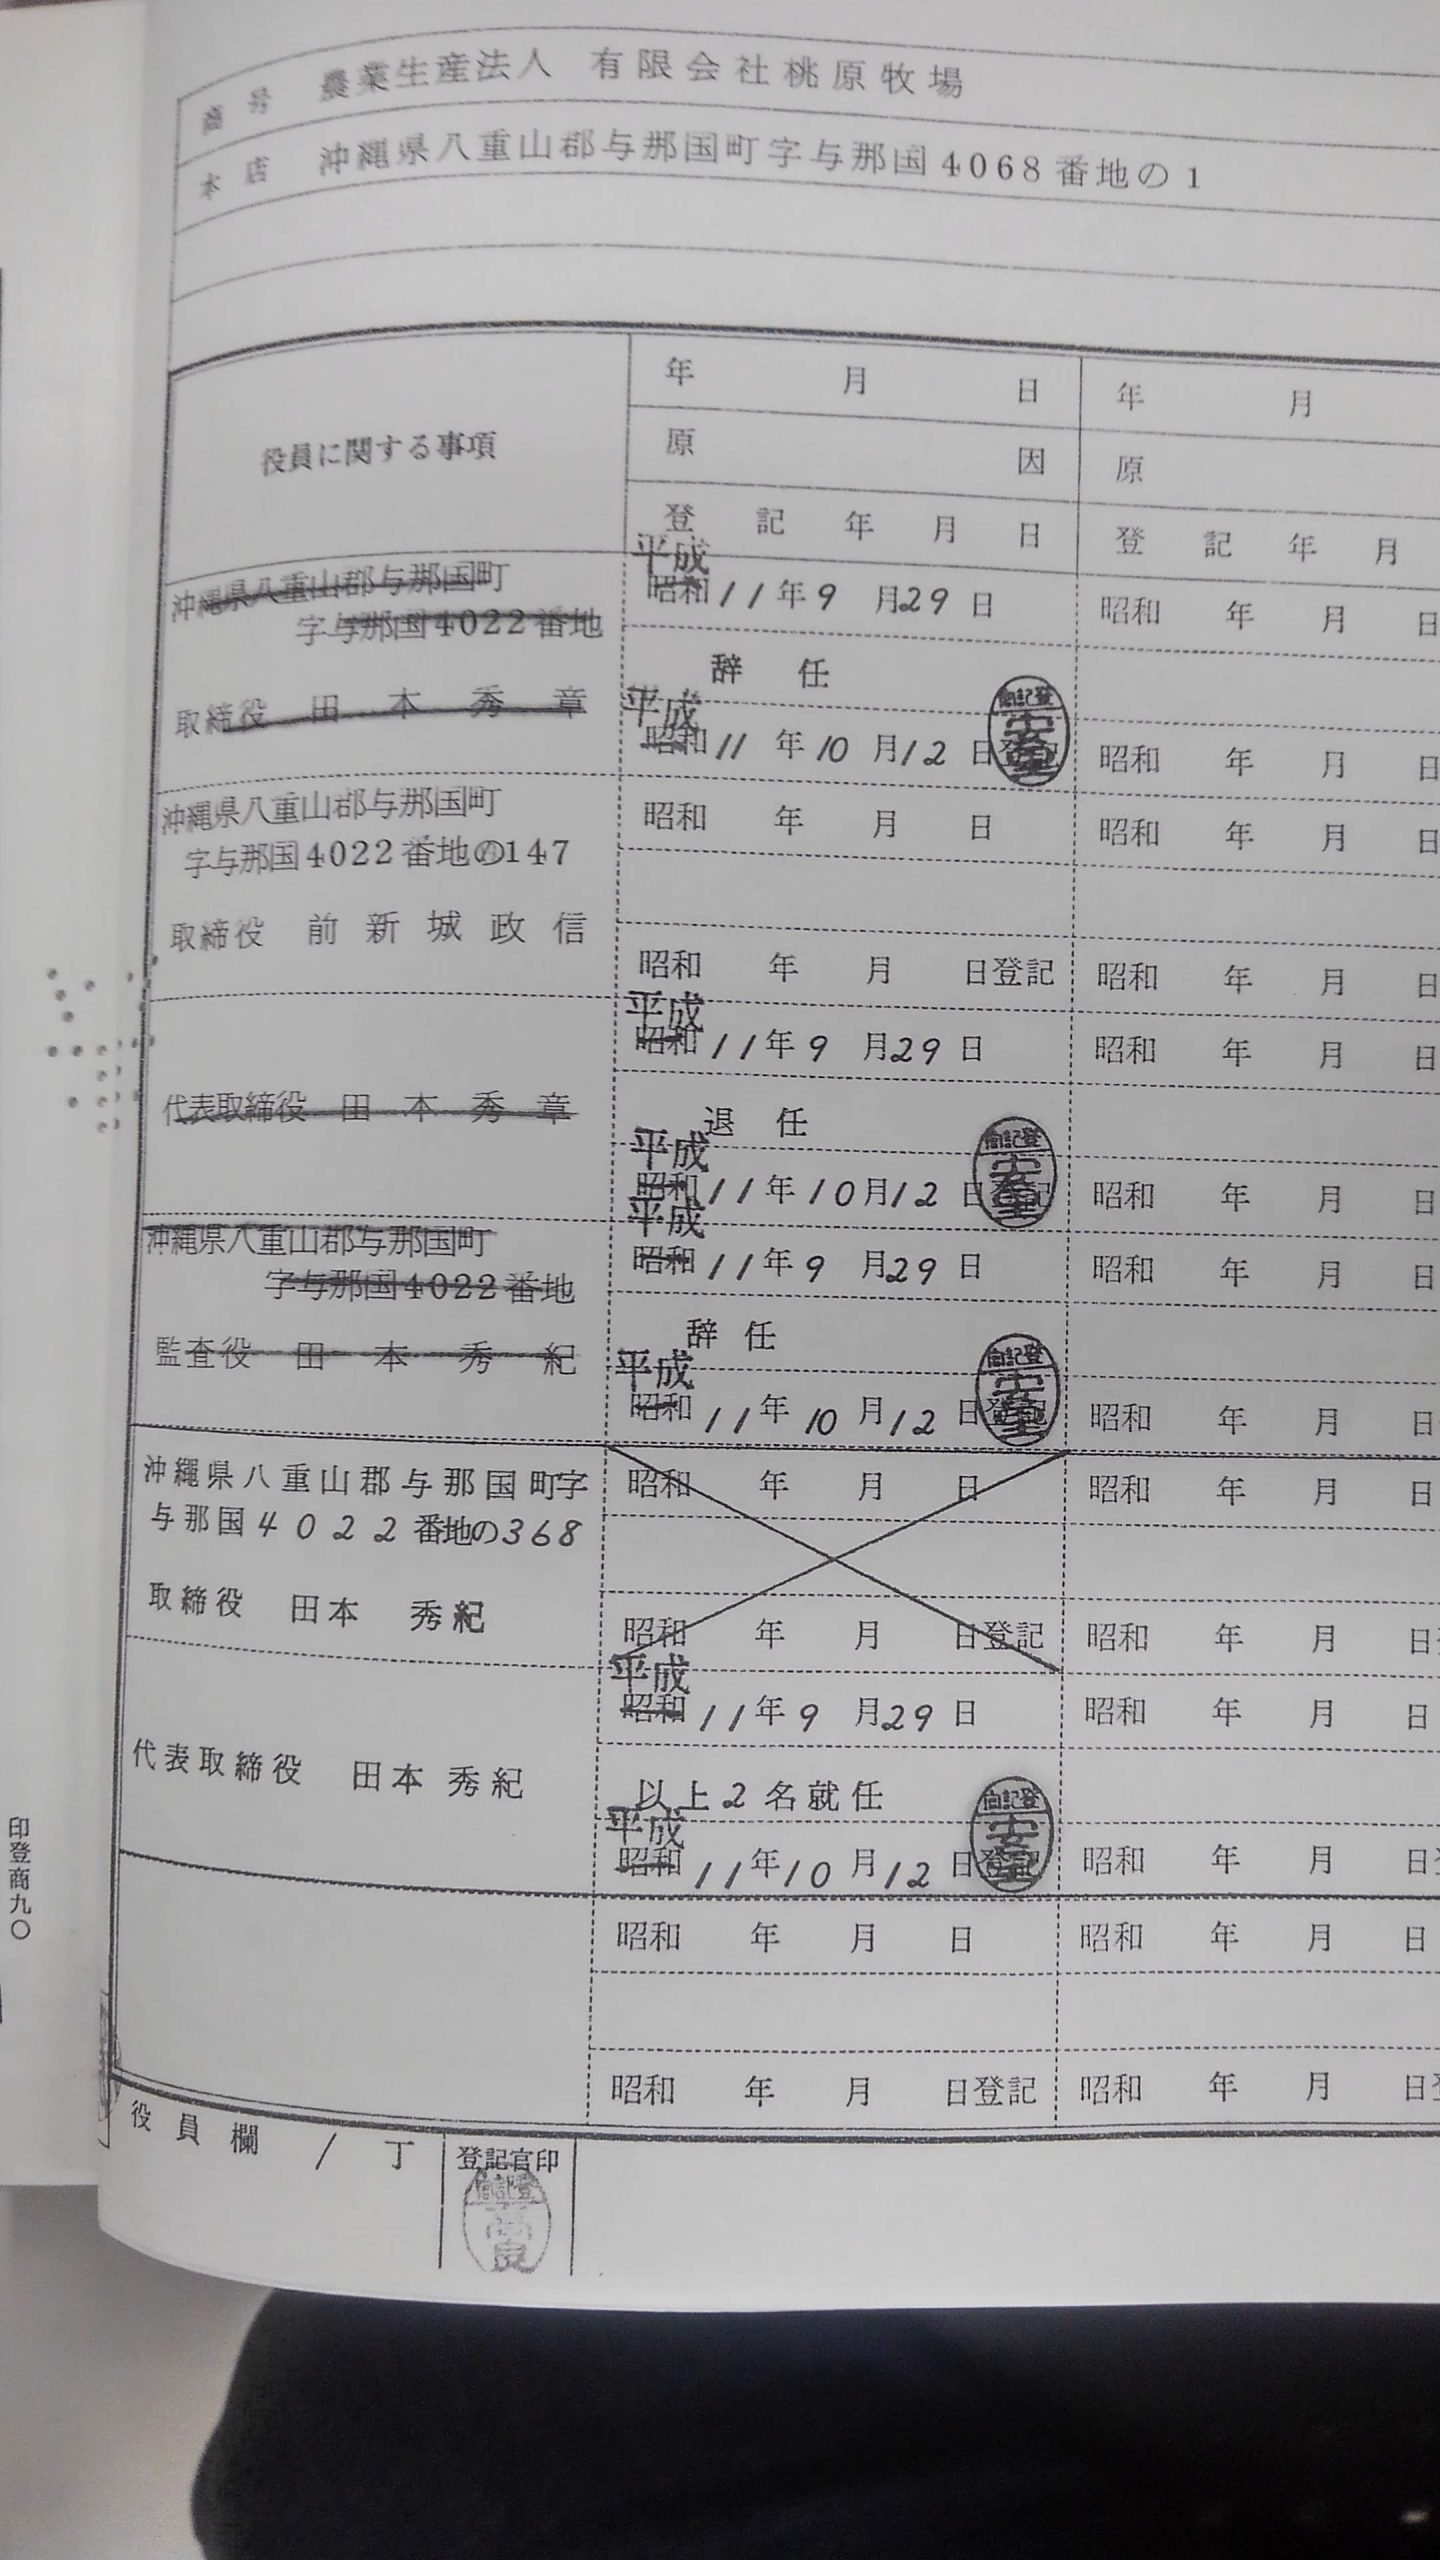 商号 農業生産法人 有限会社桃原牧場
本店 沖縄県八重山郡与那国町字与那国4068番地の1
役員に関する事項
年 月 日
原 因
登記年月日
年 月
原
登記年月
沖縄県八重山郡与那国町
字与那国4022番地
取締役 田本秀章
平成
昭和11年9月29日
辞任
平成
昭和11年10月12日登記
昭和 年 月 日
昭和 年 月 日
沖縄県八重山郡与那国町
字与那国4022番地の147
取締役 前新城政信
昭和 年 月 日
昭和 年 月 日登記
昭和 年 月 日
昭和 年 月 日
代表取締役 田本秀章
平成
昭和11年9月29日
退任
平成
昭和11年10月12日登記
昭和 年 月 日
昭和 年 月 日
沖縄県八重山郡与那国町
字与那国4022番地
監査役 田本秀紀
平成
昭和11年9月29日
辞任
平成
昭和11年10月12日登記
昭和 年 月 日
昭和 年 月 日
沖縄県八重山郡与那国町字
与那国4022番地の368
取締役 田本秀紀
昭和 年 月 日
昭和 年 月 日登記
昭和 年 月 日
昭和 年 月 日
代表取締役 田本秀紀
平成
昭和11年9月29日
以上2名就任
平成
昭和11年10月12日登記
昭和 年 月 日
昭和 年 月 日
昭和 年 月 日
昭和 年 月 日登記
昭和 年 月 日
昭和 年 月 日
役員欄 1丁
登記官印
登記官
高良
印登商九〇